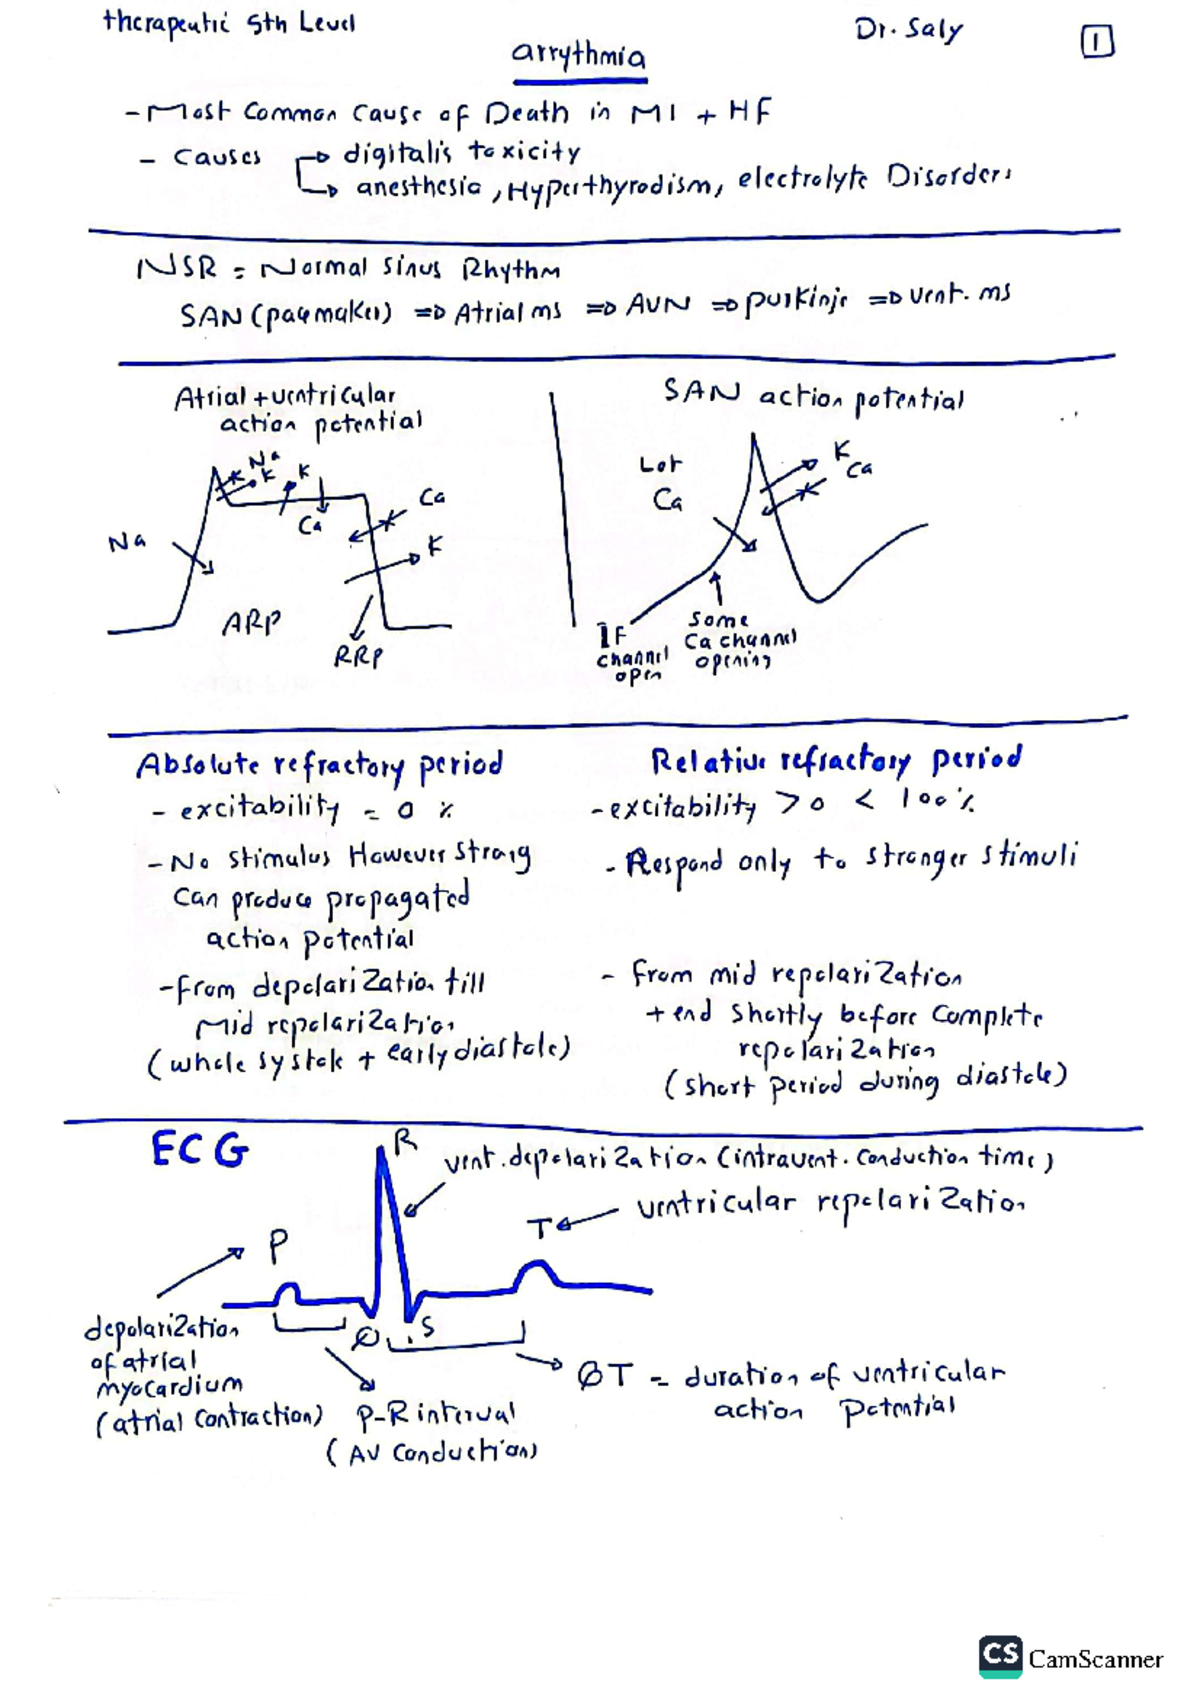 therapeutic 5th Level
Dr. Saly
1
arrythmia
- Most Common Cause of Death in MI + HF
- Causes → digitalis toxicity
→ anesthesia, Hyperthyrodism, electrolyte Disorders
NSR = Normal Sinus Rhythm
SAN (pacemaker) ⇒ Atrial ms ⇒ AVN ⇒ purkinje ⇒ vent. ms
Atrial + ventricular
action potential
Na
K
K
Ca
Ca
K
Na
ARP
RRP
SAN action potential
Lot
Ca
K
Ca
IF
channel
open
Some
Ca channel
opening
Absolute refractory period
- excitability = 0 %
- No stimulus However Strong
Can produce propagated
action potential
- from depolarization till
Mid repolarization
(whole systole + early diastole)
Relative refractory period
- excitability > 0 < 100%
- Respond only to stronger stimuli
- from mid repolarization
+ end shortly before complete
repolarization
(short period during diastole)
ECG
R
vent. depolarization (intravent. conduction time)
T ← ventricular repolarization
P
Q
S
depolarization
of atrial
myocardium
(atrial contraction)
P-R interval
(AV conduction)
QT = duration of ventricular
action potential
CS CamScanner